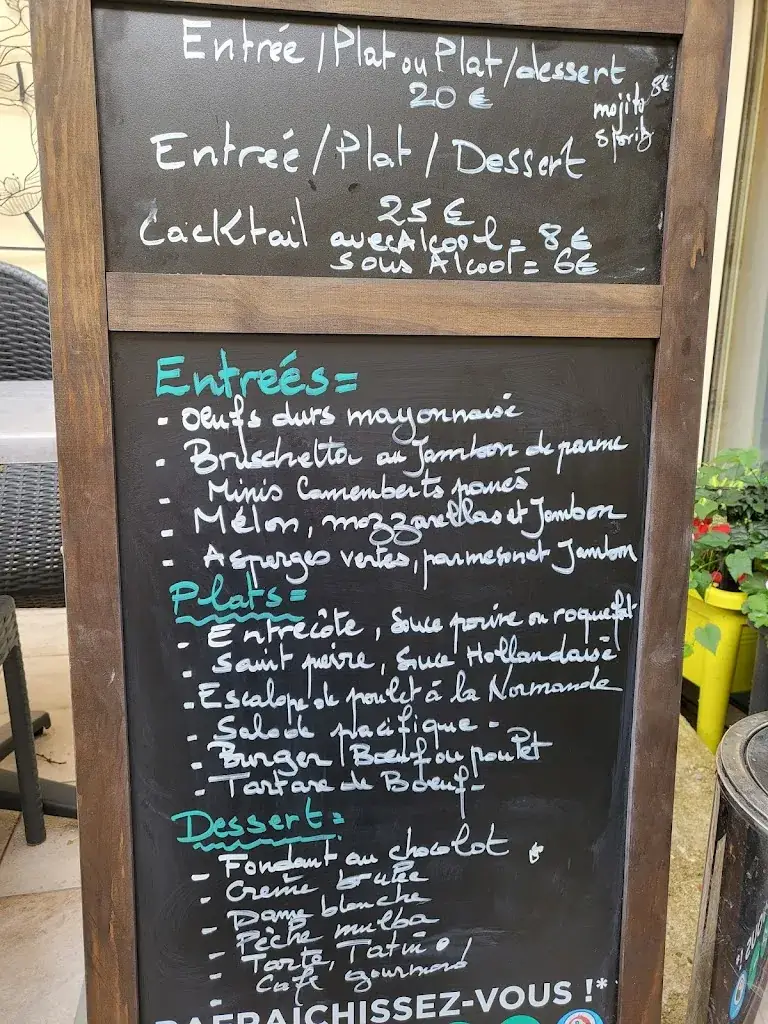 Entrée / Plat ou Plat / dessert
20 €
mojito 8€
Spritz
Entreé / Plat / Dessert
25 €
Cacktail avec Alcool = 8 €
sous Alcool = 6€
Entreés =
- Oeufs durs mayonnaise
- Bruschetta au Jambon de parme
- Minis Camemberts panés
- Mélon, mozzarellas et Jambon
- Asperges vertes, parmesan et Jambon
Plats =
- Entrecôte, Sauce poivre ou roquefort
- Saint pierre, Sauce Hollandaise
- Escalope de poulet à la Normande
- Salade pacifique -
- Burger Boeuf ou poulet
- Tartare de Boeuf -
Dessert =
- Fondant au chocolat
- Crème brulée
- Dame blanche
- Pêche melba
- Tarte, Tatin
- Café gourmand
RAFRAICHISSEZ-VOUS !*